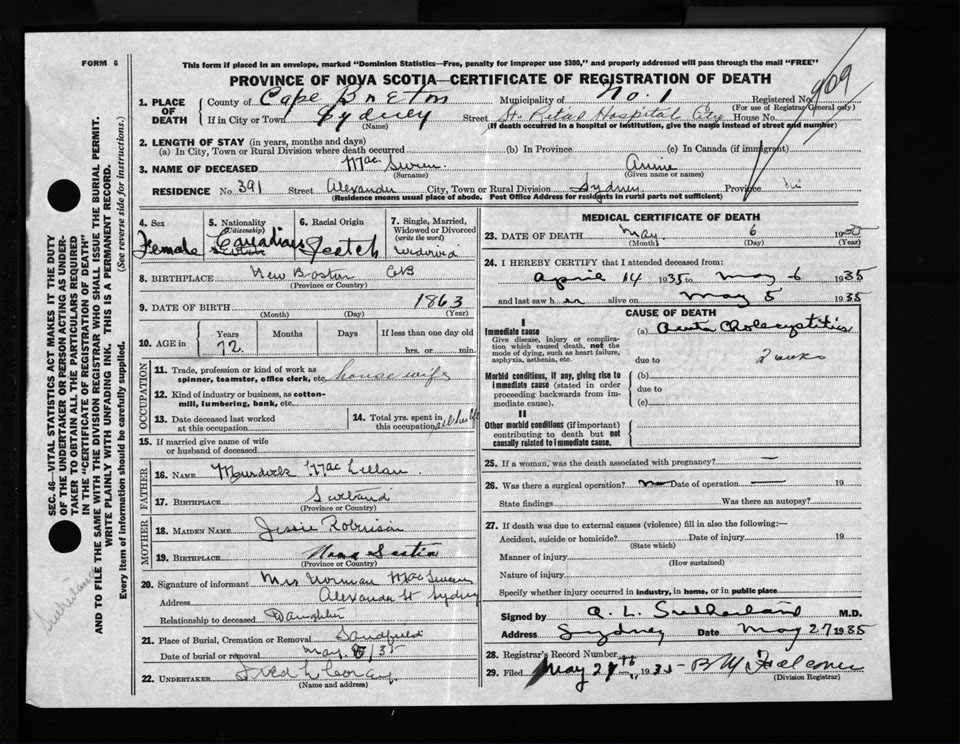 FORM 6
This form if placed in an envelope, marked "Dominion Statistics—Free, penalty for improper use $300," and properly addressed will pass through the mail "FREE"
PROVINCE OF NOVA SCOTIA—CERTIFICATE OF REGISTRATION OF DEATH
1. PLACE OF DEATH
County of Cape Breton Municipality of No. 1 Registered No. 909
(For use of Registrar General only)
If in City or Town Sydney Street St. Rita's Hospital City House No.
(Name) (If death occurred in a hospital or institution, give the name instead of street and number)
2. LENGTH OF STAY (in years, months and days)
(a) In City, Town or Rural Division where death occurred (b) In Province (c) In Canada (if immigrant)
3. NAME OF DECEASED Mac Annie
(Surname) (Given name or names)
RESIDENCE No. 391 Street Alexander City, Town or Rural Division Sydney Province
(Residence means usual place of abode. Post Office Address for residents in rural parts not sufficient)
4. Sex
Female
5. Nationality
(Citizenship)
Canadian
6. Racial Origin
Scotch
7. Single, Married, Widowed or Divorced
(write the word)
8. BIRTHPLACE New Boston CB
(Province or Country)
9. DATE OF BIRTH 1863
(Month) (Day) (Year)
10. AGE in
Years Months Days If less than one day old
72. hrs. or min.
OCCUPATION
11. Trade, profession or kind of work as
spinner, teamster, office clerk, etc. housewife
12. Kind of industry or business, as cotton-
mill, lumbering, bank, etc.
13. Date deceased last worked
at this occupation
14. Total yrs. spent in
this occupation
15. If married give name of wife
or husband of deceased
FATHER
16. NAME Murdock Mac Lellan
17. BIRTHPLACE
(Province or Country)
MOTHER
18. MAIDEN NAME Jessie Robinson
19. BIRTHPLACE Nova Scotia
(Province or Country)
20. Signature of informant Mrs Norman Mac
Address Alexander St Sydney
Relationship to deceased Daughter
21. Place of Burial, Cremation or Removal Sandfield
Date of burial or removal May 8/35
22. UNDERTAKER
(Name and address)
MEDICAL CERTIFICATE OF DEATH
23. DATE OF DEATH May 6 1935
(Month) (Day) (Year)
24. I HEREBY CERTIFY that I attended deceased from:
April 14 1935 to May 6 1935
and last saw her alive on May 5 1935
CAUSE OF DEATH
I
Immediate cause
Give disease, injury or complica-
tion which caused death, not the
mode of dying, such as heart failure,
asphyxia, asthenia, etc.
(a) Acute Cholecystitis
due to 2 weeks
Morbid conditions, if any, giving rise to
immediate cause (stated in order
proceeding backwards from im-
mediate cause).
(b)
due to
(c)
II
Other morbid conditions (if important)
contributing to death but not
causally related to immediate cause.
25. If a woman, was the death associated with pregnancy? —
26. Was there a surgical operation? no Date of operation — 19
State findings Was there an autopsy?
27. If death was due to external causes (violence) fill in also the following:—
Accident, suicide or homicide? Date of injury 19
(State which)
Manner of injury
(How sustained)
Nature of injury
Specify whether injury occurred in industry, in home, or in public place
Signed by A. L. Sutherland M.D.
Address Sydney Date May 27 1935
28. Registrar's Record Number
29. Filed May 27th 1935 B M Falconer
(Division Registrar)
SEC. 46—VITAL STATISTICS ACT MAKES IT THE DUTY
OF THE UNDERTAKER OR PERSON ACTING AS UNDER-
TAKER TO OBTAIN ALL THE PARTICULARS REQUIRED
IN THE "CERTIFICATE OF REGISTRATION OF DEATH"
AND TO FILE THE SAME WITH THE DIVISION REGISTRAR WHO SHALL ISSUE THE BURIAL PERMIT.
WRITE PLAINLY WITH UNFADING INK. THIS IS A PERMANENT RECORD.
Every item of information should be carefully supplied. (See reverse side for instructions.)